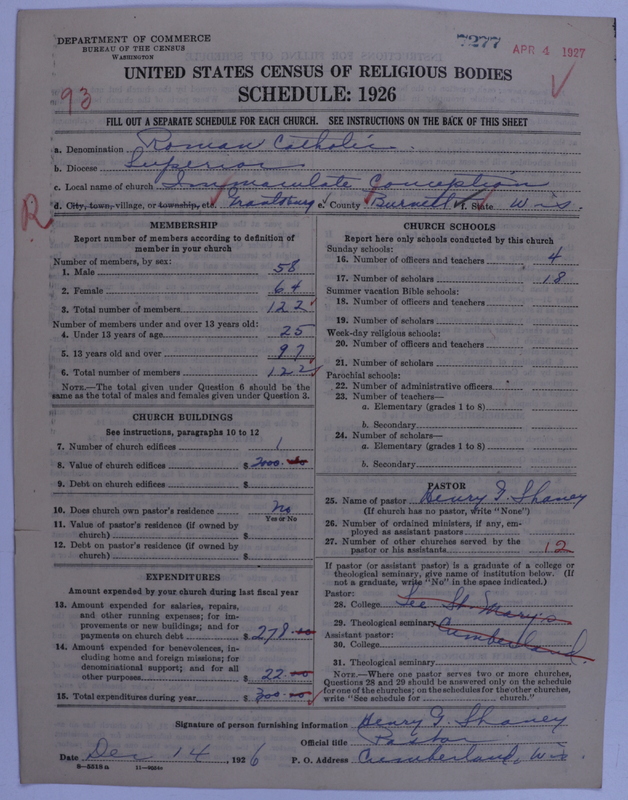 DEPARTMENT OF COMMERCE
BUREAU OF THE CENSUS
WASHINGTON
APR 4 1927
UNITED STATES CENSUS OF RELIGIOUS BODIES
SCHEDULE: 1926
93
FILL OUT A SEPARATE SCHEDULE FOR EACH CHURCH. SEE INSTRUCTIONS ON THE BACK OF THIS SHEET
a. Denomination Roman Catholic
b. Diocese Superior
c. Local name of church Immaculate Conception
d. City, town, village, or township, etc. Grantsburg e. County Burnett f. State Wis.
R
MEMBERSHIP
Report number of members according to definition of
member in your church
Number of members, by sex:
1. Male 58
2. Female 64
3. Total number of members 122
Number of members under and over 13 years old:
4. Under 13 years of age 25
5. 13 years old and over 97
6. Total number of members 122
NOTE.—The total given under Question 6 should be the
same as the total of males and females given under Question 3.
CHURCH BUILDINGS
See instructions, paragraphs 10 to 12
7. Number of church edifices 1
8. Value of church edifices $ 2000.00
9. Debt on church edifices $
10. Does church own pastor's residence no
Yes or No
11. Value of pastor's residence (if owned by
church) $
12. Debt on pastor's residence (if owned by
church) $
EXPENDITURES
Amount expended by your church during last fiscal year
13. Amount expended for salaries, repairs,
and other running expenses; for im-
provements or new buildings; and for
payments on church debt $ 278.00
14. Amount expended for benevolences, in-
cluding home and foreign missions; for
denominational support; and for all
other purposes $ 22.00
15. Total expenditures during year $ 300.00
CHURCH SCHOOLS
Report here only schools conducted by this church
Sunday schools:
16. Number of officers and teachers 4
17. Number of scholars 18
Summer vacation Bible schools:
18. Number of officers and teachers
19. Number of scholars
Week-day religious schools:
20. Number of officers and teachers
21. Number of scholars
Parochial schools:
22. Number of administrative officers
23. Number of teachers—
a. Elementary (grades 1 to 8)
b. Secondary
24. Number of scholars—
a. Elementary (grades 1 to 8)
b. Secondary
PASTOR
25. Name of pastor Henry G. Shaney
(If church has no pastor, write "None")
26. Number of ordained ministers, if any, em-
ployed as assistant pastors
27. Number of other churches served by the
pastor or his assistants 12
If pastor (or assistant pastor) is a graduate of a college or
theological seminary, give name of institution below. (If
not a graduate, write "No" in the space indicated.)
Pastor:
28. College See St. Mary's
29. Theological seminary Cumberland.
Assistant pastor:
30. College
31. Theological seminary
NOTE.—Where one pastor serves two or more churches,
Questions 28 and 29 should be answered only on the schedule
for one of the churches; on the schedules for the other churches,
write "See schedule for church."
Signature of person furnishing information Henry G. Shaney
Official title Pastor
Date Dec 14, 1926 P. O. Address Cumberland, Wis